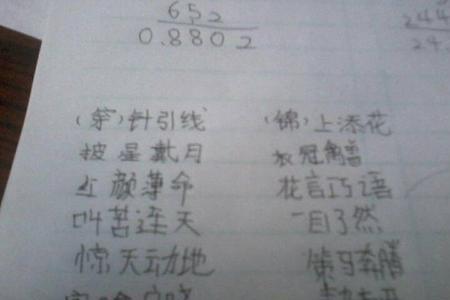 652
0.8802
244
24.
(穿)针引线 (锦)上添花
披星戴月 衣冠禽兽
红颜薄命 花言巧语
叫苦连天 一目了然
惊天动地 策马奔腾